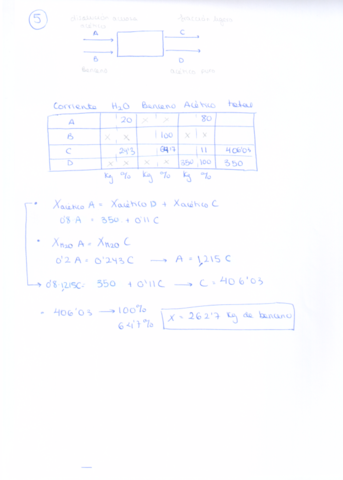 5
A C
B D
Benceno
Corriente H2O Benceno Acético total
A 20 x x 80
B x x 100 x x
C 24'3 64'7 11 406'03
D x x x x 350 100 350
Kg % Kg % Kg %
• Xacético A = Xacético D + Xacético C
0'8 A = 350 + 0'11 C
• XH2O A = XH2O C
0'2 A = 0'243 C → A = 1,215 C
→ 0'8·1,215C = 350 + 0'11C → C = 406'03
= 406'03 → 100%
64'7%
x = 262'7 Kg de benceno